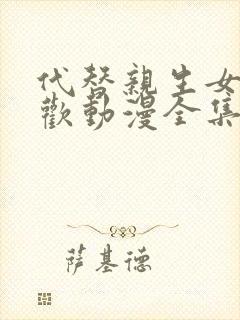 代替親生女
歡動漫全集
萨基德